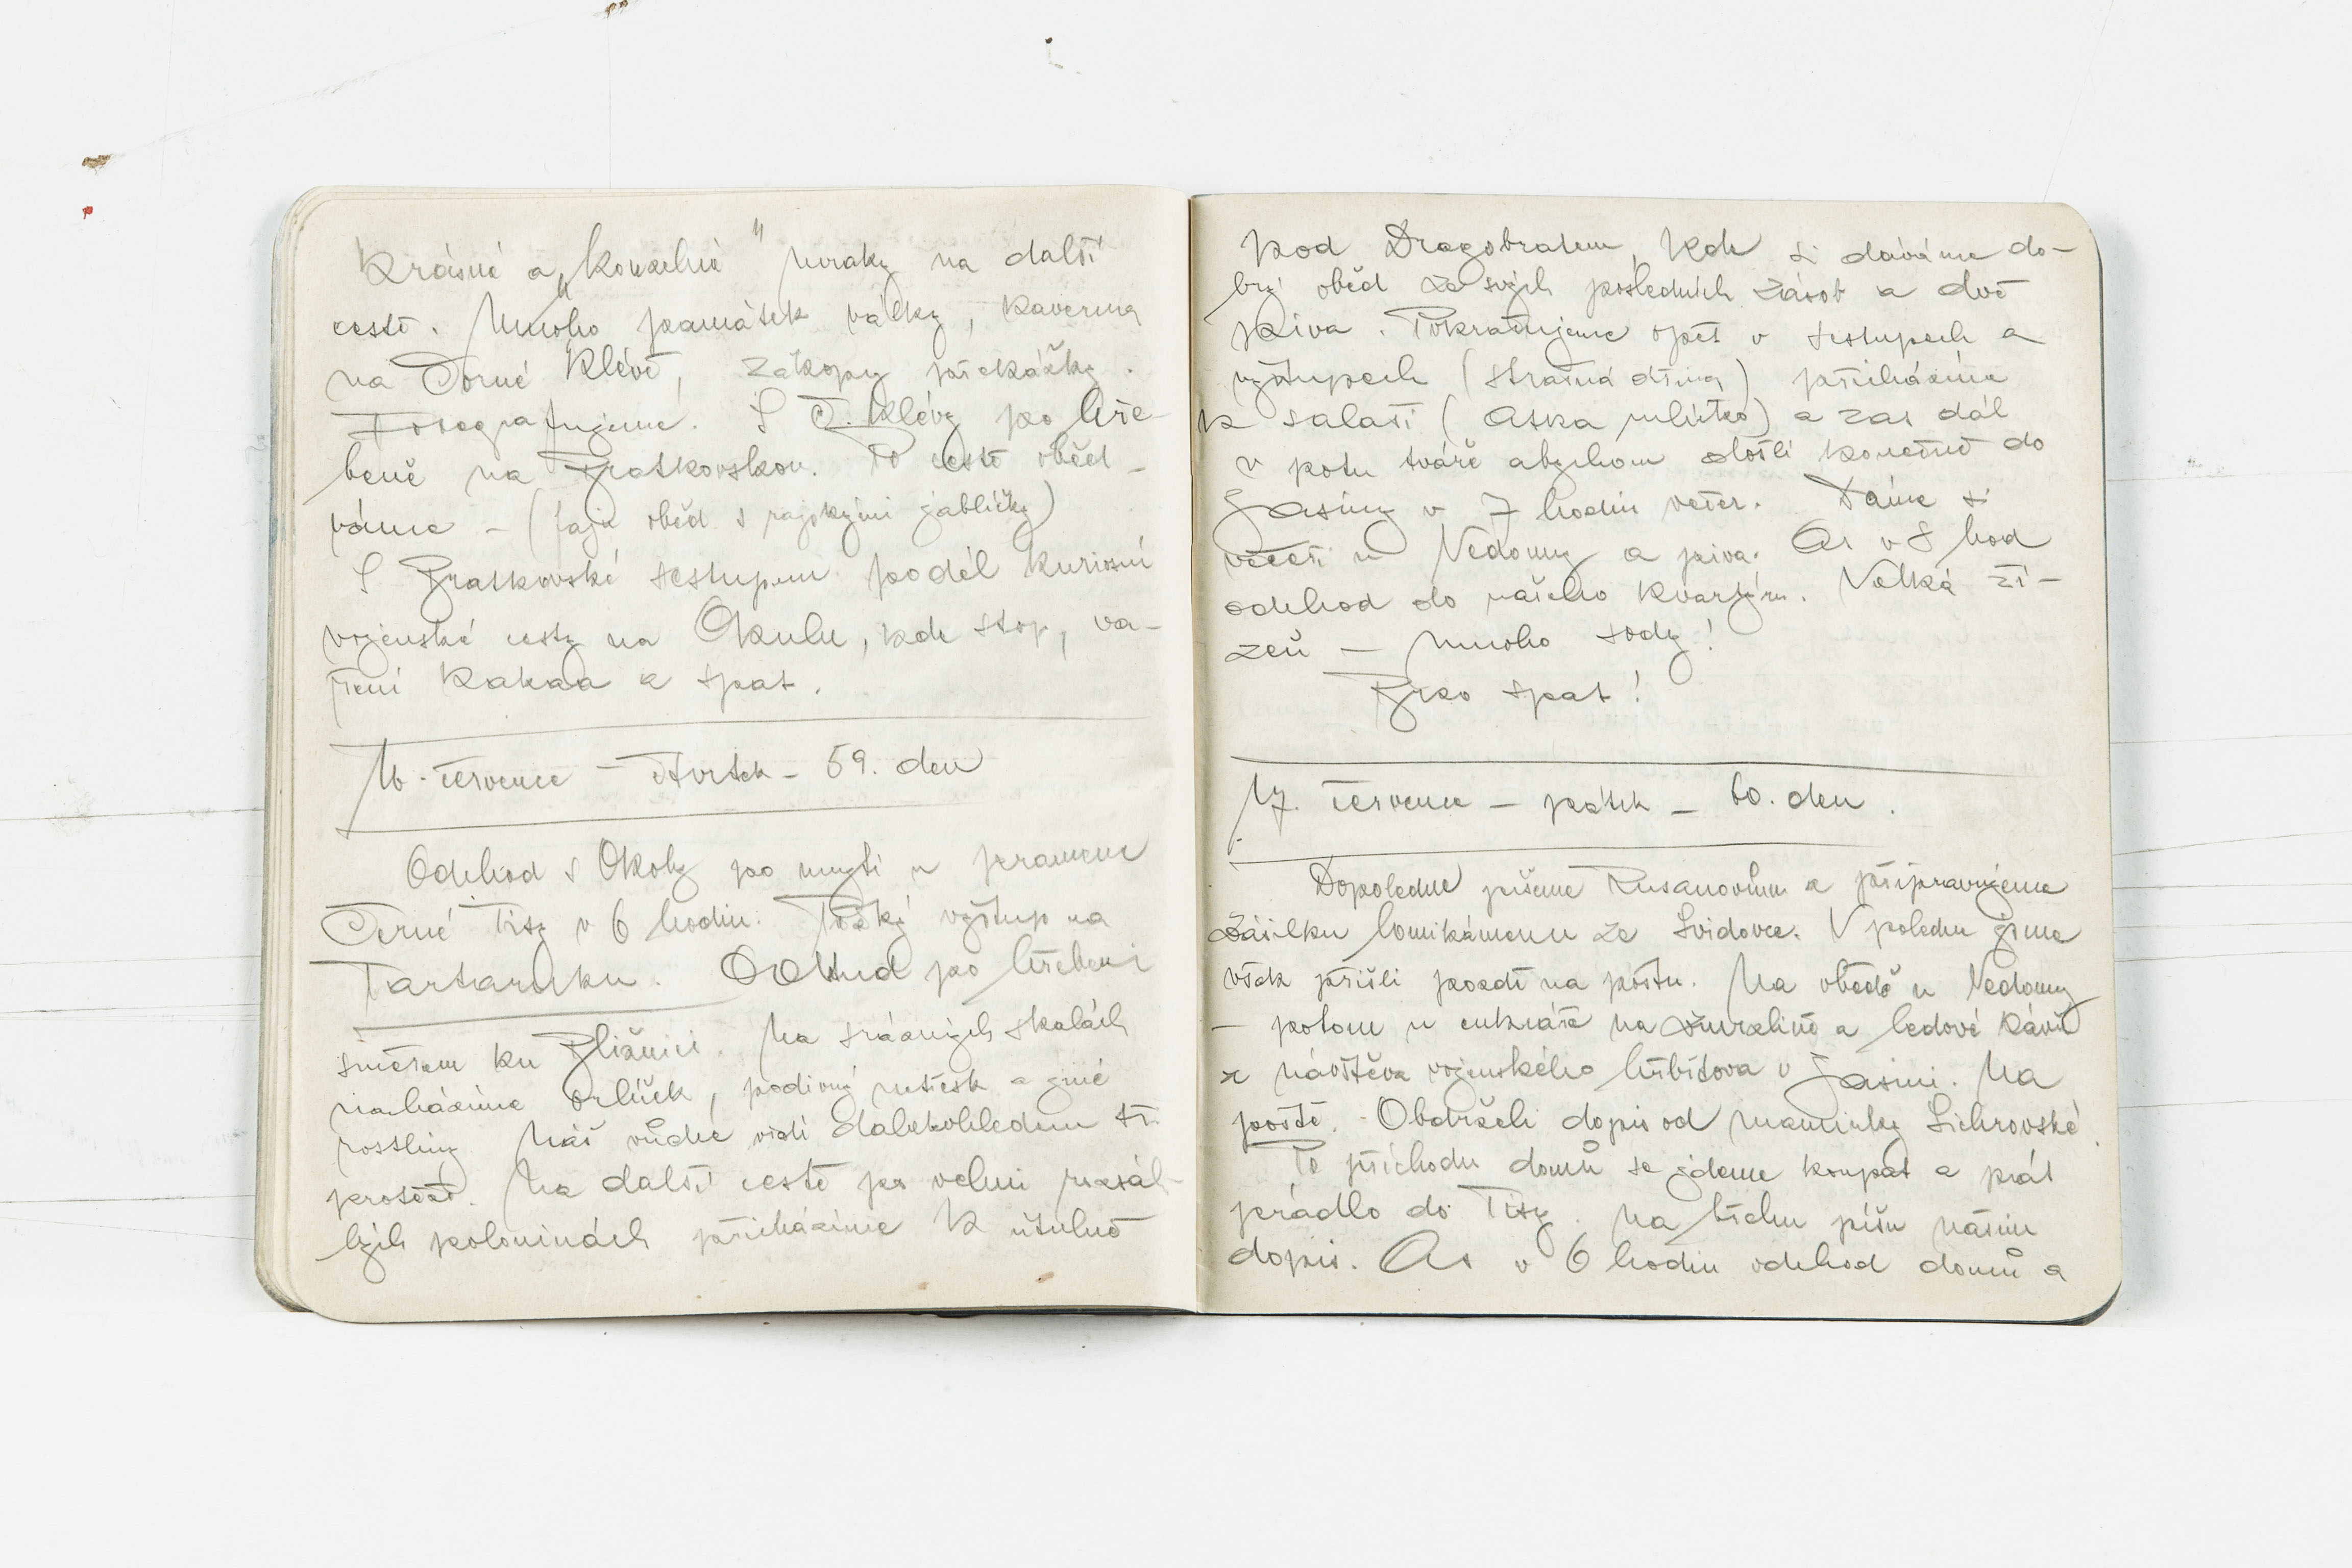 Krásné a „kouzelné" mraky na další
cestě. Mnoho památek války, kaverna
na Černé Klévě, zákopy překážky.
Fotografujeme. S Č. Klévy po hře-
beně na Bratkovskou. Po cestě oběd-
váme - (fajn oběd s rajskými jablíčky)
S Bratkovské sestupem podél kuriosní
vojenské cesty na Okulu, kde stop, va-
ření kakaa a spat.
16. července - čtvrtek - 59. den
Odchod s Okoly po mytí u pramene
Černé Tisy v 6 hodin. Těžký výstup na
Tartaruku. Odtud po hřebeni
směrem ku Bližnici. Na srázných skalách
nacházíme orlíček, podivný netřesk a jiné
rostliny. Náš vůdce vidí dalekohledem
protěž. Na další cestě po velmi rozsáh-
lých poloninách přicházíme k útulně
pod Dragobratem, kde si dáváme do-
brý oběd ze svých posledních zásob a dvě
piva. Pokračujeme opět v sestupech a
výstupech (strašná dřina) přicházíme
k salaši (Aska mlíčko) a zas dál
v potu tváře abychom došli konečně do
Jasiny v 7 hodin večer. Dáme si
večeři u Nedomy a piva. As v 8 hod
odchod do našeho kvartýru. Velká ží-
zeň - mnoho sody!
Brzo spat!
17. července - pátek - 60. den.
Dopoledne píšeme Rusanovům a připravujeme
zásilku lomikámenu ze Svidovce. V poledne jsme
však přišli pozdě na poštu. Na obědě u Nedomy
- potom u cukráře na zmrzlině a ledové kávě
a návštěva vojenského hřbitova v Jasini. Na
poště. Obdrželi dopis od maminky Lichrovské.
Po příchodu domů se jdeme koupat a prát
prádlo do Tisy. Na břehu píšu našim
dopis. As v 6 hodin odchod domů a